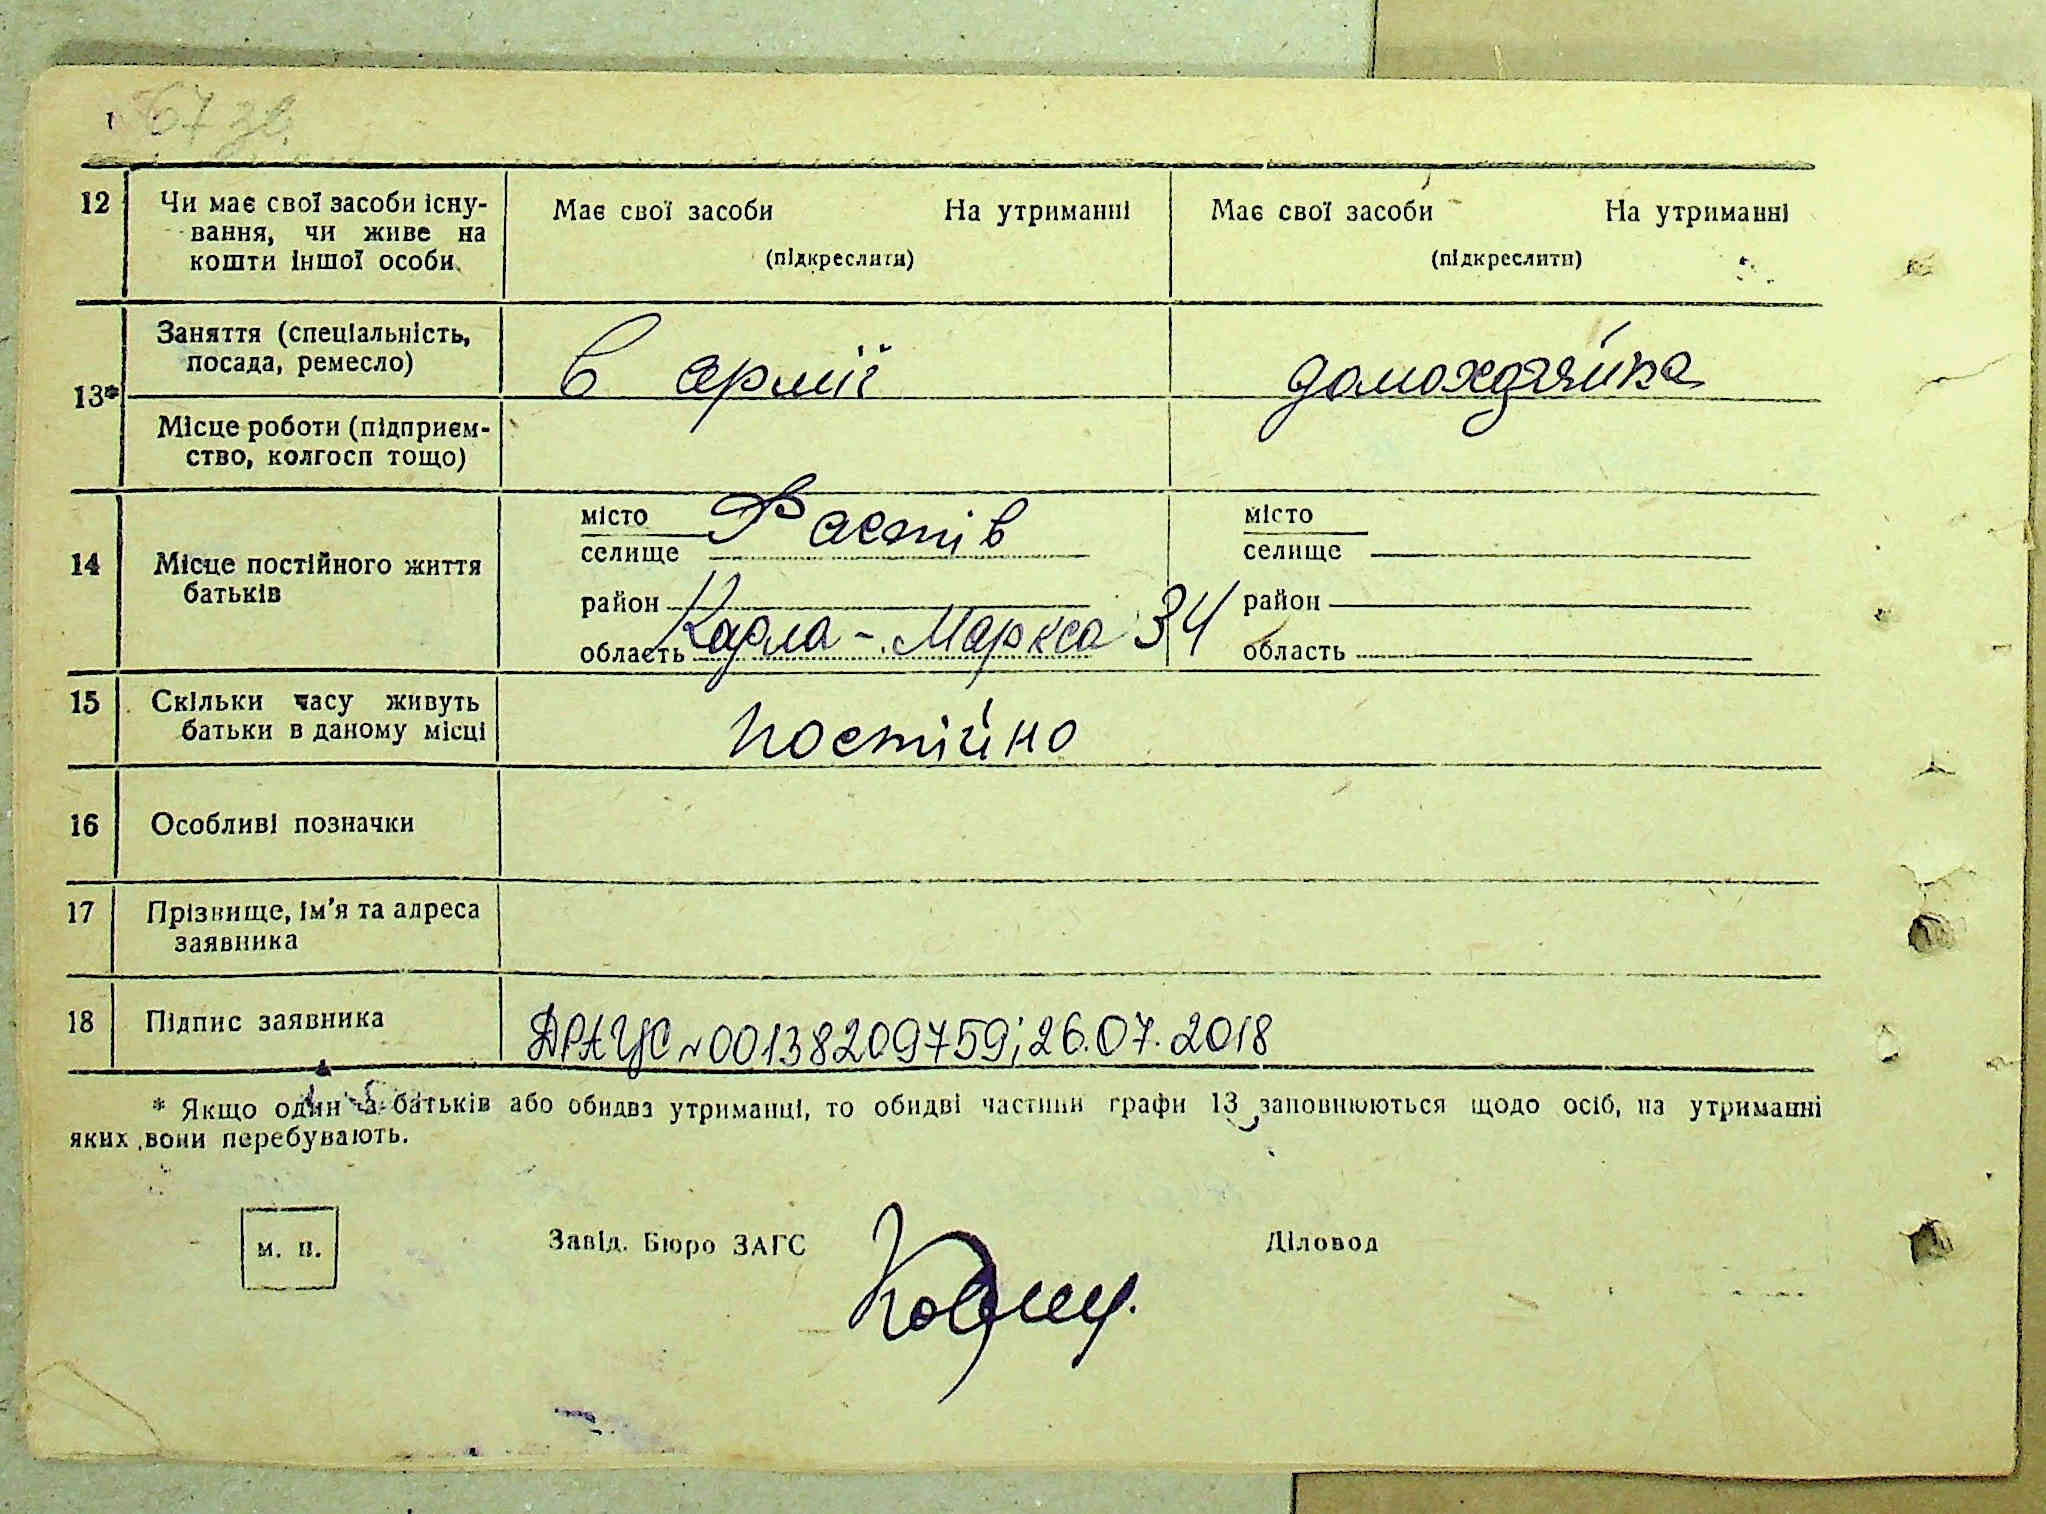 67 зв.
12 Чи має свої засоби існу- Має свої засоби На утриманні Має свої засоби На утриманні
вання, чи живе на
кошти іншої особи. (підкреслити) (підкреслити)
Заняття (спеціальність,
посада, ремесло) в армії домохазяйка
13*
Місце роботи (підприєм-
ство, колгосп тощо)
місто Фастів місто
селище селище
14 Місце постійного життя
батьків
район район
область Карла-Маркса 34 область
15 Скільки часу живуть
батьки в даному місці постійно
16 Особливі позначки
17 Прізвище, ім'я та адреса
заявника
18 Підпис заявника ДРАЦС №00138209759; 26.07.2018
* Якщо один з батьків або обидва утриманці, то обидві частини графи 13 заповнюються щодо осіб, на утриманні
яких вони перебувають.
м. п. Завід. Бюро ЗАГС Діловод